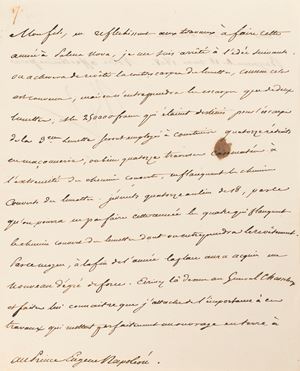 Mon fils, en réfléchissant aux travaux à faire cette
année à Palma Nova, je me suis arrêté à l'idée suivante.
on achevera de revêtir les contrescarpes de lunettes, comme cela
est convenu, mais on n'entreprendra les escarpes que de deux
lunettes. Les 25,000 francs qui étaient destinés pour l'escarpe
de la 3eme lunette seront employés à construire quatorze réduits
en maçonnerie, ou bien quatorze traverses casematées à
l'extrémité du chemin couvert, et flanquant le chemin
couvert des lunettes. je mets quatorze au lieu de 18, parce
qu'on pourra ne pas faire cette année les quatre qui flanquent
le chemin couvert des lunettes dont on entreprendra le revêtement.
Par ce moyen, à la fin de l'année la place aura acquis un
nouveau dégré de force. Ecrivez là dessus au Général Chasseloup
et faites lui connaitre que j'attache de l'importance à ces
travaux qui mettent parfaitement un ouvrage en terre à
au Prince Eugène Napoléon.